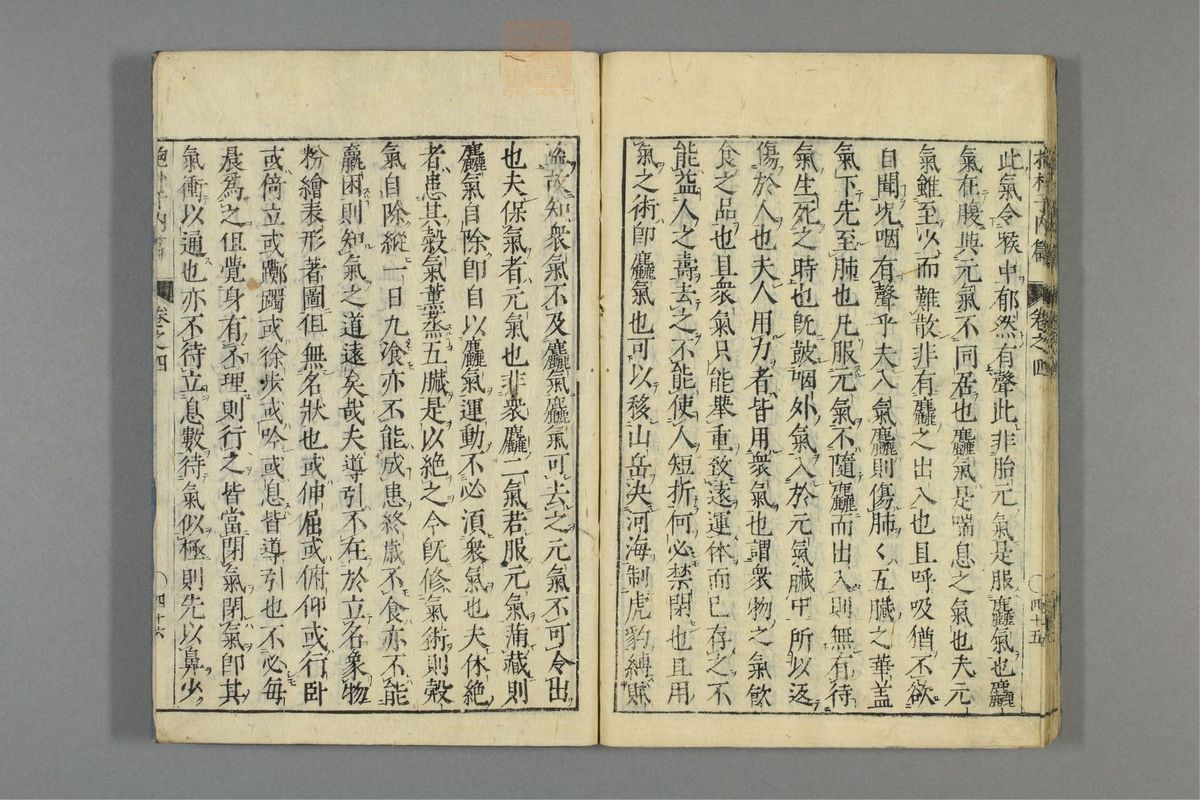 抱朴子內篇 卷之四 〇四十五
此氣令喉中郁然有聲此非胎元氣是服麤氣也麤
氣在腹與元氣不同居也麤氣是喘息之氣也夫元
氣雖至少而難散非有麤之出入也且呼吸猶不欲
自聞况咽有聲乎夫入氣麤則傷肺〻五臟之華蓋
氣下先至肺也凡服元氣不隨麤而出入則無有待
氣生死之時也旣鼓咽外氣入於元氣臟中所以返
傷於人也夫人用力者皆用衆氣也謂衆物之氣飮
食之品也且衆氣只能舉重致遠運体而已存之不
能益人之壽去之不能使人短折何必禁閉也且用
氣之術卽麤氣也可以移山岳决河海制虎豹縛賊
故知衆氣不及麤氣麤氣可去之元氣不可令出
也夫保氣者元氣也非衆麤二氣若服元氣滿藏則
麤氣自除卽自以麤氣運動不必須衆氣也夫休絶
者患其糓氣薰蒸五臟是以絶之今旣修氣術則糓
氣自除縱一日九飡亦不能成患終歲不食亦不能
羸困則知氣之道遠矣哉夫導引不在於立名象物
粉繪表形著圖但無名狀也或伸屈或俯仰或行卧
或倚立或躑躅或徐步或吟或息皆導引也不必每
晨爲之但覺身有不理則行之皆當閉氣閉氣卽其
氣衝以通也亦不待立息數待氣似極則先以鼻少
抱朴子內篇 卷之四 〇四十六